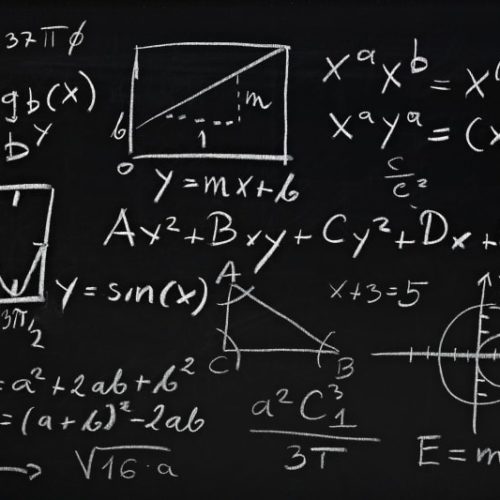 37πφ
gb(x)
b^y
b
m
1
0
y = mx + b
x^a x^b = x
x^a y^a = (x
c/c²
Ax² + Bxy + Cy² + Dx +
3π/2
y = sin(x)
A
C
B
x + 3 = 5
= a² + 2ab + b²
= (a + b)² - 2ab
→ √16·a
a² C₁³ / 3T
E = m